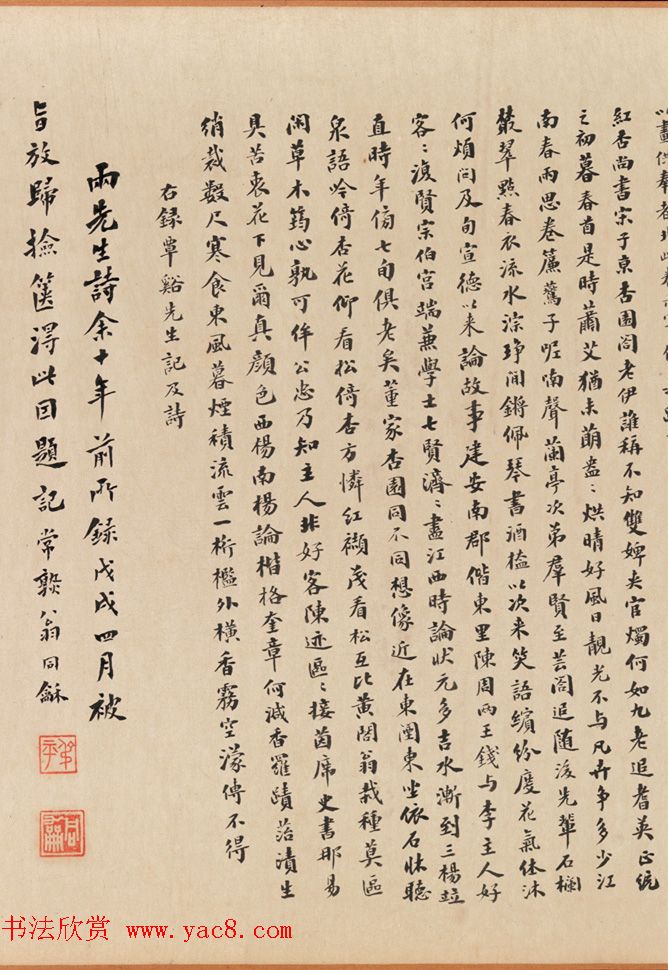 紅杏尚書宋子京杏園閣老伊誰稱不知雙婢夾官燭何如九老追耆英正統
之初暮春首是時蕭艾猶未萌盎〻烘晴好風日靚光不与凡卉争多少江
南春雨思卷簾鶯子呢喃聲蘭亭次第群賢至芸閣追隨後先輩石欄
叢翠點春衣流水淙琤間鏘佩琴書酒榼以次来笑語繽紛度花氣休沐
何煩問及旬宣德以来論故事建安南郡偕東里陳周兩王錢与李主人好
客〻復賢宗伯宫端兼學士七賢濟〻盡江西時論狀元多吉水漸到三楊竝
直時年倚七旬俱老矣董家杏園同不同想像近在東闉東坐依石牀聽
泉語吟倚杏花仰看松倚杏方憐紅纈茂看松互比黄閣翁栽種莫區
闲草木筠心孰可侔公忠乃知主人非好客陳迹區〻接茵席史書那易
具苦衷花下見爾真顔色西楊南楊論楷格奎章何減香羅蹟落漬生
綃裁數尺寒食東風暮煙積流雲一桁檻外横香霧空濛傳不得
右録覃谿先生記及詩
兩先生詩余十年前所録戊戌四月被
旨放歸撿篋得此因題記常熟翁同龢
書法欣賞 www.yac8.com